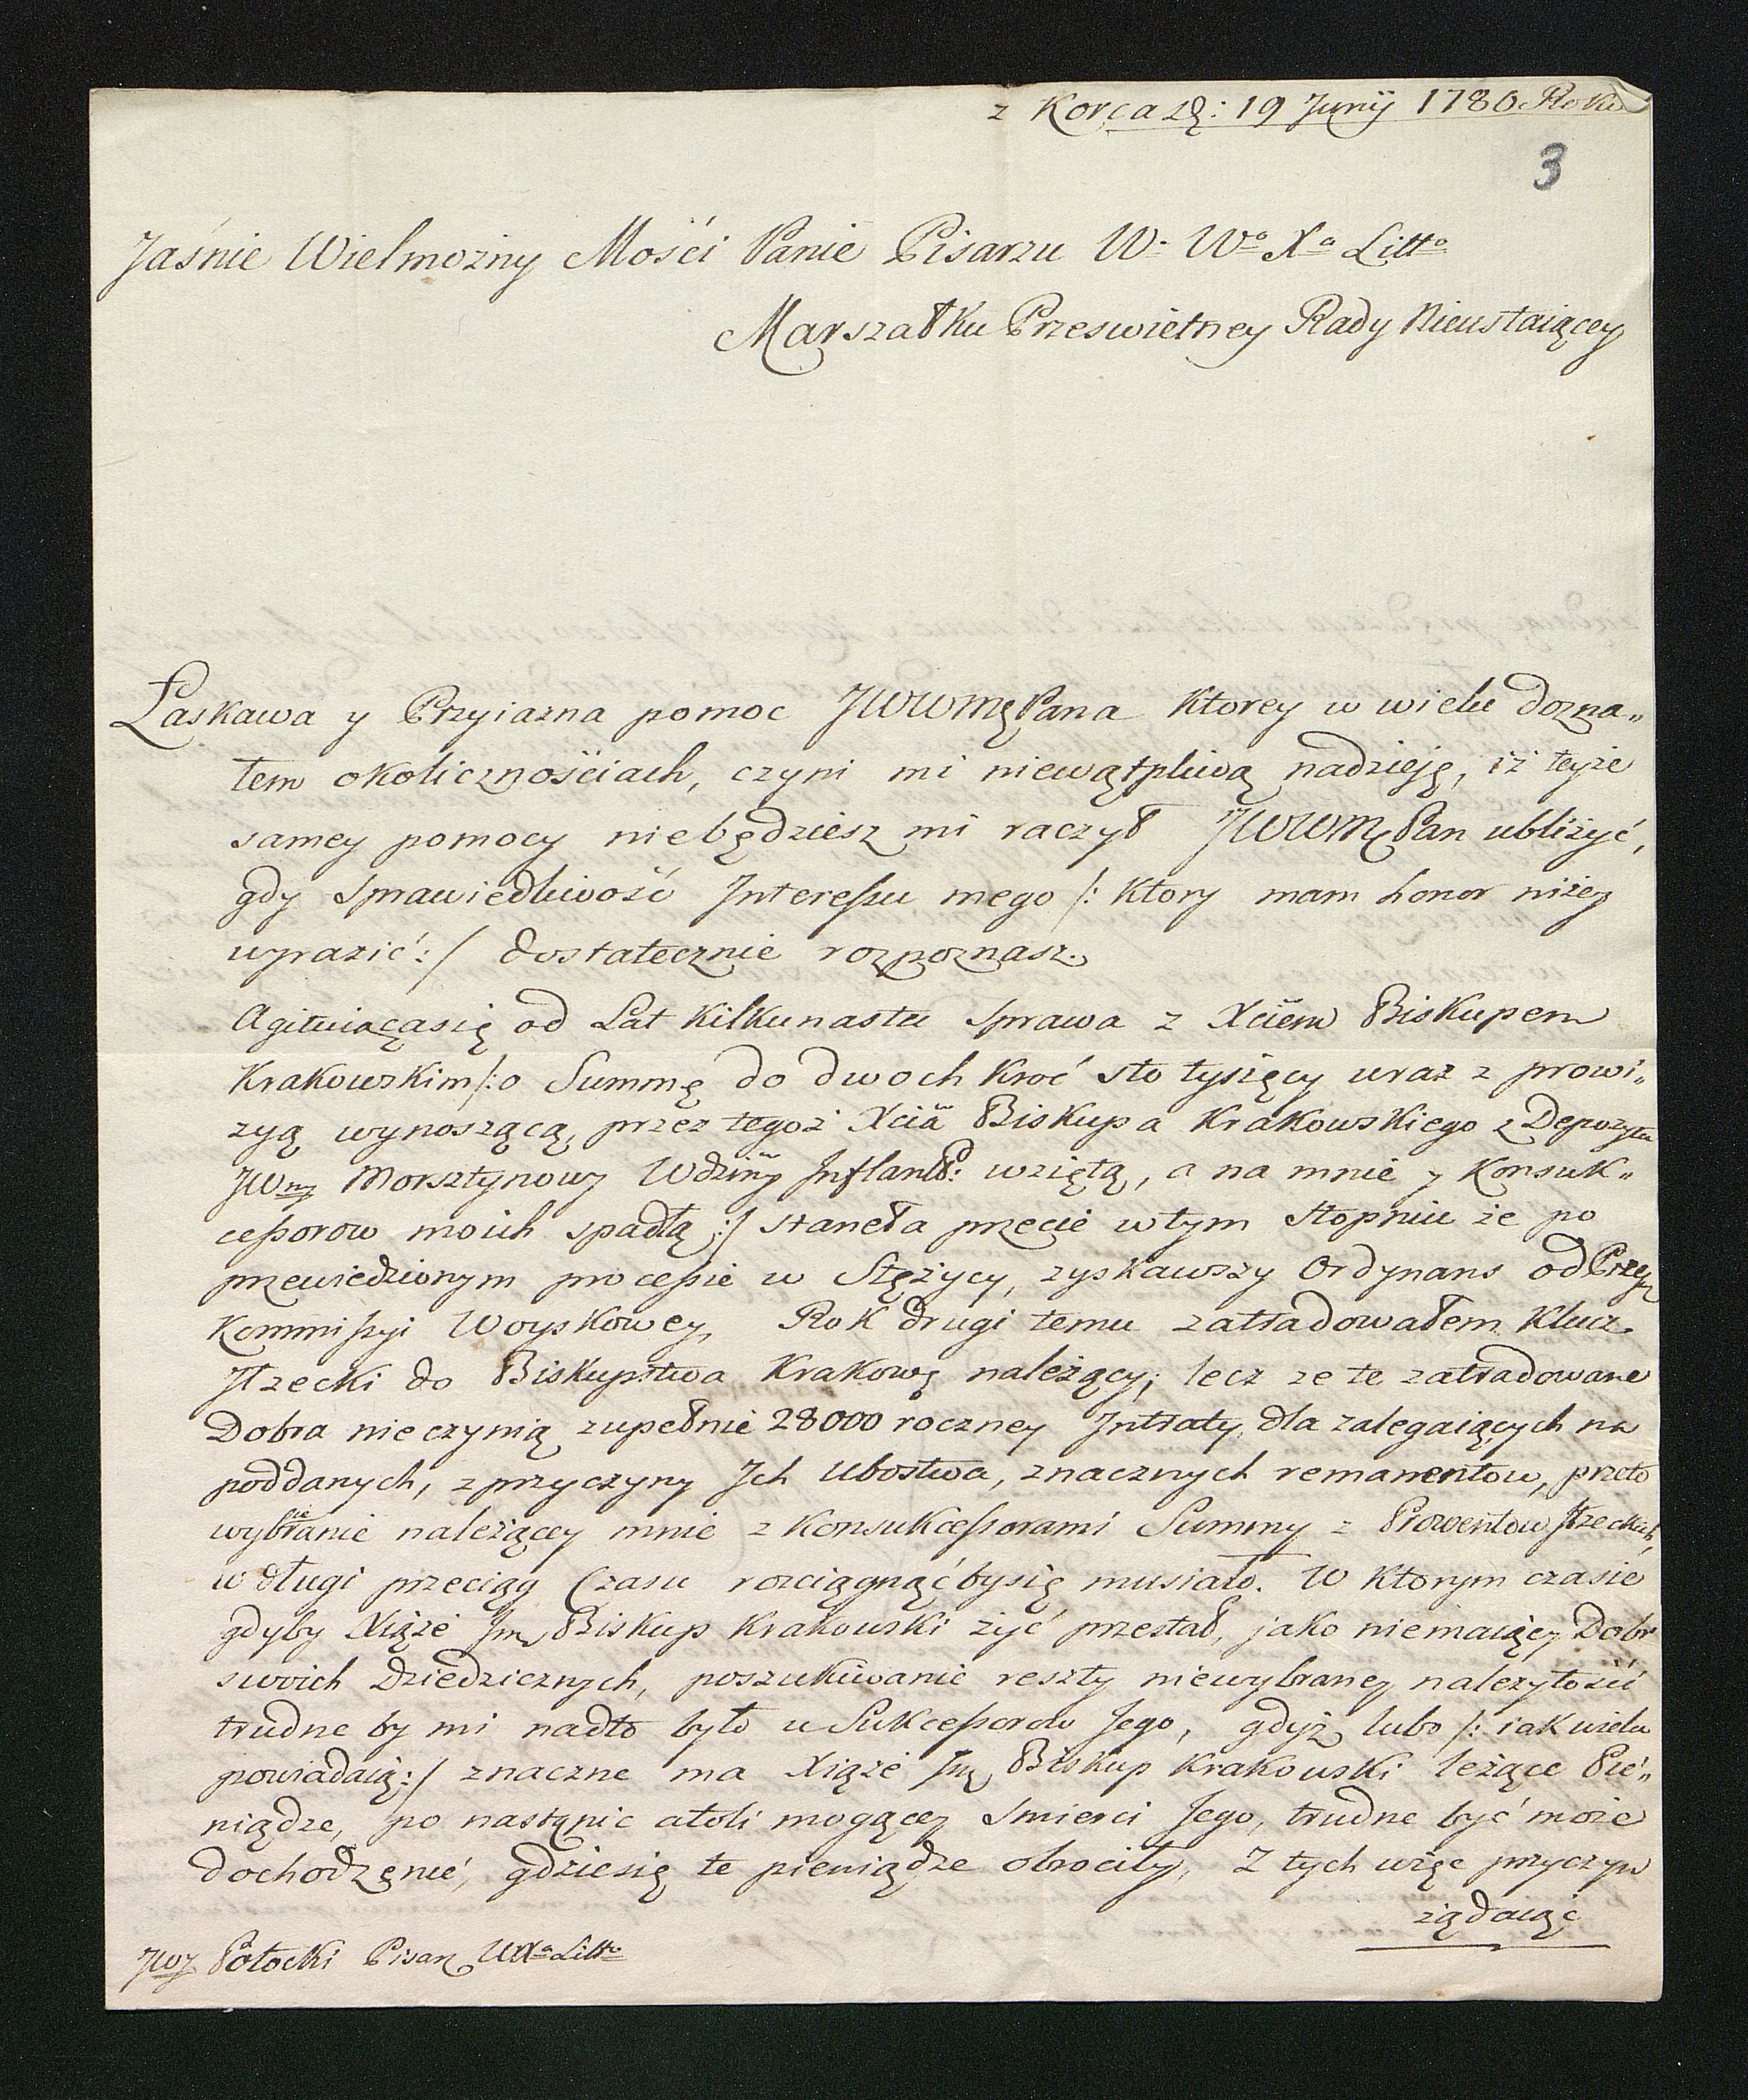 z Korca dę: 19 Junÿ 1780 Roku
3
Jaśnie Wielmozny Mości Panie Pisarzu W. Wo Xa Litto
Marszałku Przeswietney Rady Nieustaiącey
Łaskawa y Przyiazna pomoc JWWMę Pana Ktorey w wielu dozna„
łem okolicznościach, czyni mi niewątpliwą nadzieję, iż teyże
samey pomocy niebędziesz mi raczył JWWMę Pan ubliżyć,
gdy Sprawiedliwość Interessu mego /: Ktory mam honor niżey
wyrazić:/ dostatecznie rozpoznasz.
Agituiącasię od Lat Kilkunastu Sprawa z Xciem Biskupem
Krakowskim /: o Summę do dwoch Kroć sto tysięcy wraz z prowi„
zyą wynoszącą, przez tegoż Xcia Biskupa Krakowskiego z Depozytu
JWny Morsztynowy Wdziny Inflantt: wziętą, a na mnie y Konsuk„
cessorow moich spadłą :/ staneła przecie wtym Stopniu że po
przewiedzionym processie w Stężycy, zyskawszy Ordynans od Przey
Kommissyi Woyskowey, Rok drugi temu zatradowałem Klucz
Iłzecki do Biskupstwa Krakowę należący; lecz ze te zatradowane
Dobra nieczynią zupełnie 28000 roczney Intraty, dla zalegaiących na
poddanych, z przyczyny Ich Ubostwa, znacznych remanentow, przeto
wybranie nie należącey mnie z Konsukcessorami Summy z Prowentow Iłzeckich,
w długi przeciąg Czasu rozciągnąćbysię musiało. W Ktorym czasie
gdyby Xiąże Jm Biskup Krakowski żyć przestał, jako niemaiący Dobr
swoich Dziedzicznych, poszukiwanie reszty niewybraney należytości
trudne by mi nadto było u Sukcessorow Jego, gdyż lubo /: iak wielu
powiadaią:/ znaczne ma Xiąże Jmę Biskup Krakowski leżące Pie„
niądze, po nastąpic atoli mogącey Smierci Jego, trudne być może
dochodzęnie, gdziesię te pieniądze obrociły, Z tych więc przyczyn
żądaiąc
JWJ Potocki Pisarz WXa Litto